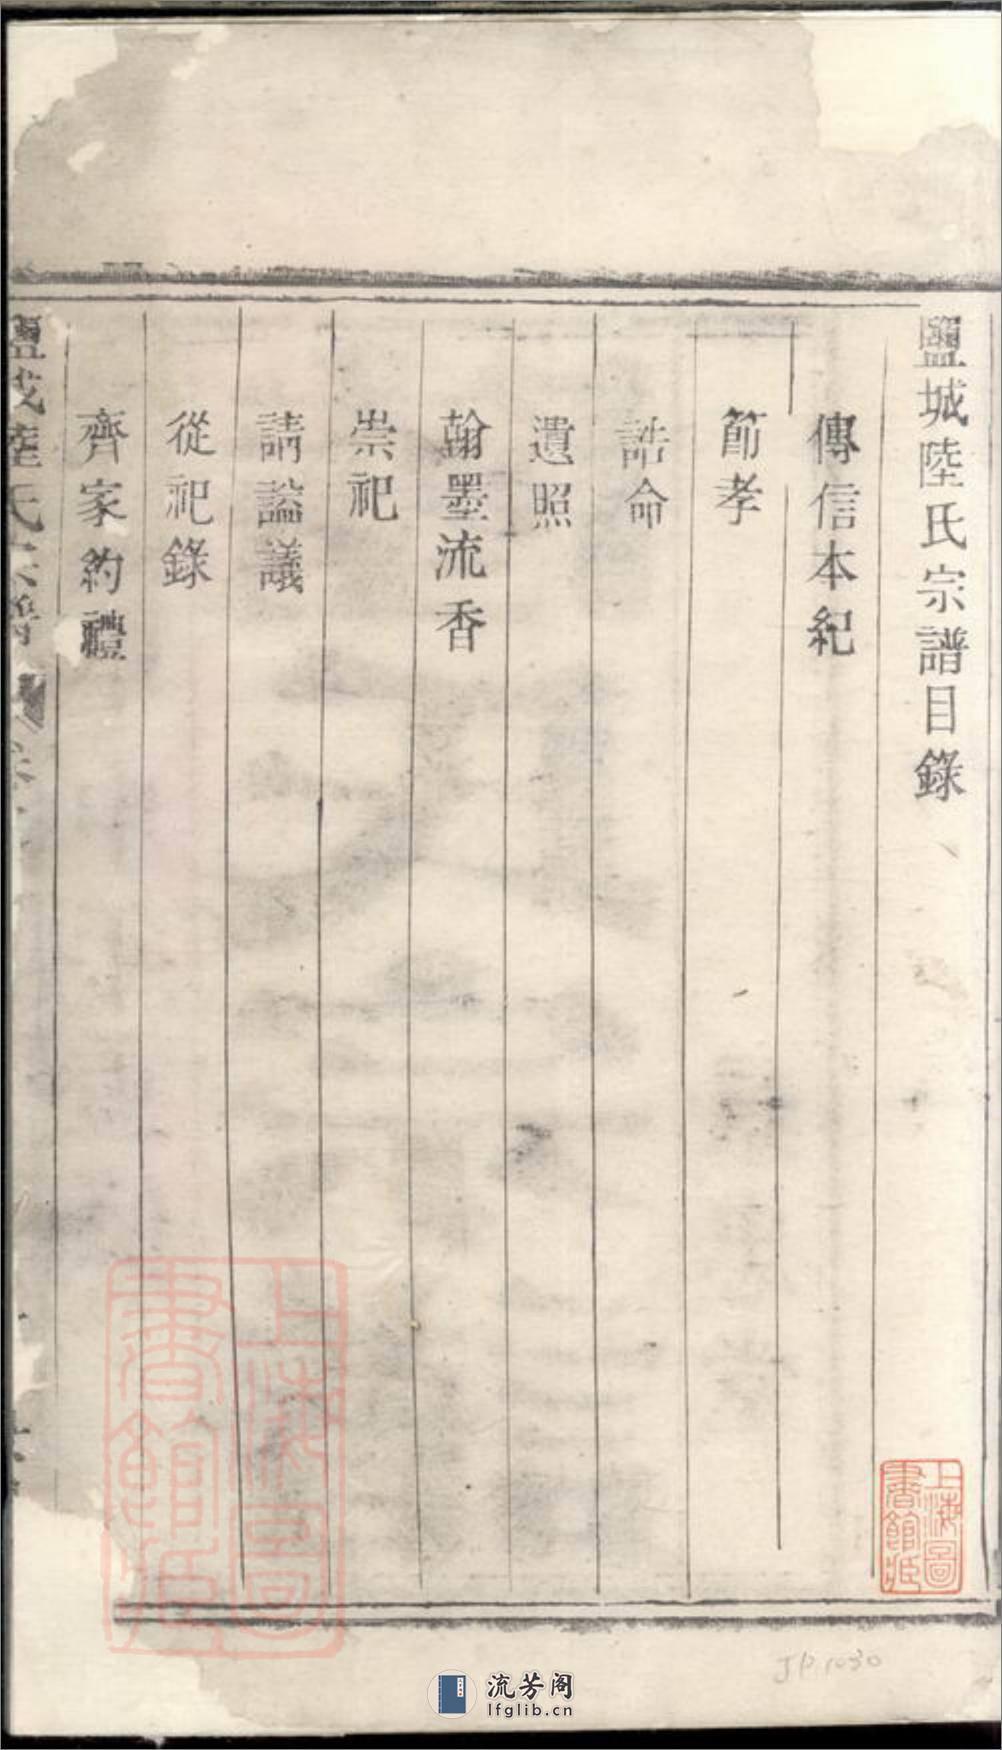 鹽城陸氏宗譜目錄
傳信本紀
節孝
誥命
遺照
翰墨流香
崇祀
請謚議
從祀錄
齊家約禮
鹽城陸氏宗譜
上海圖書館藏
上海圖書館藏
JP1030
流芳阁
lfglib.cn